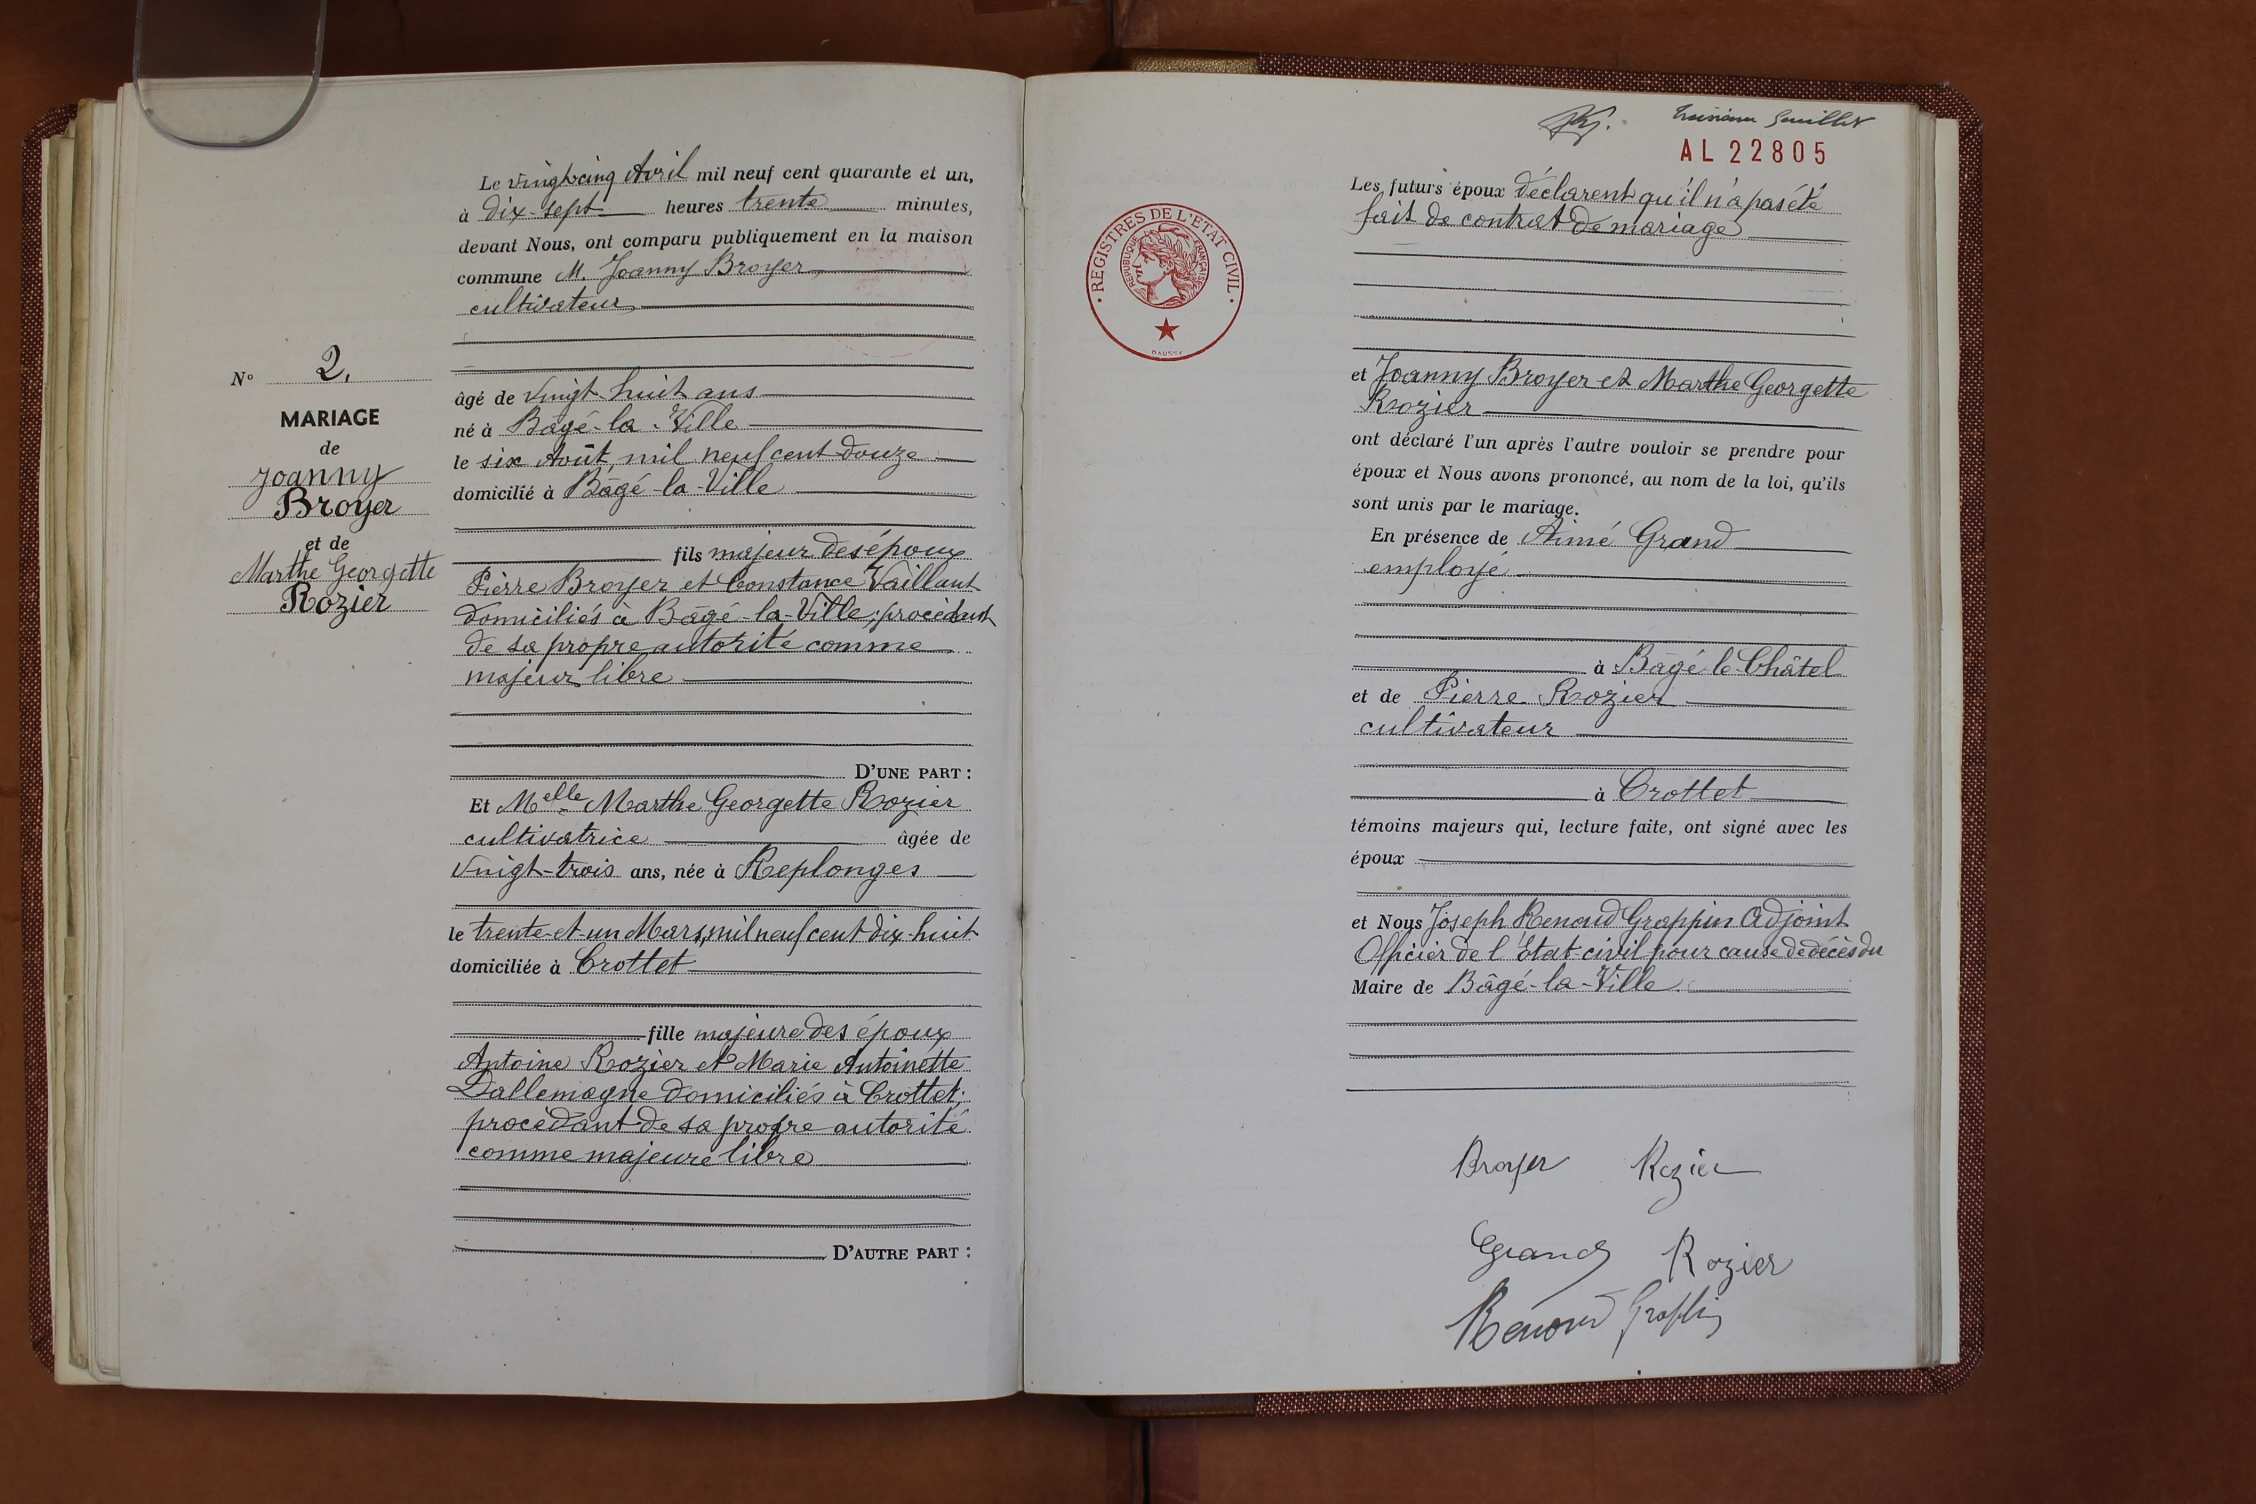 N° 2.
MARIAGE
de
Joanny
Broyer
et de
Marthe Georgette
Rozier
Le vingt-cinq Avril mil neuf cent quarante et un,
à dix-sept heures trente minutes,
devant Nous, ont comparu publiquement en la maison
commune M. Joanny Broyer
cultivateur
âgé de vingt huit ans
né à Bâgé-la-Ville
le six Août, mil neuf cent douze
domicilié à Bâgé-la-Ville
fils majeur des époux
Pierre Broyer et Constance Vaillant
domiciliés à Bâgé-la-Ville; procédant
de sa propre autorité comme
majeur libre
D'UNE PART :
Et Melle Marthe Georgette Rozier
cultivatrice âgée de
vingt-trois ans, née à Replonges
le trente-et-un Mars, mil neuf cent dix-huit
domiciliée à Crottet
fille majeure des époux
Antoine Rozier et Marie Antoinette
Dallemagne domiciliés à Crottet;
procèdant de sa propre autorité
comme majeure libre
D'AUTRE PART :
AL 22805
REGISTRES DE L'ETAT CIVIL
REPUBLIQUE FRANÇAISE
DAUSSY
Les futurs époux déclarent qu'il n'a pas été
fait de contrat de mariage
et Joanny Broyer et Marthe Georgette
Rozier
ont déclaré l'un après l'autre vouloir se prendre pour
époux et Nous avons prononcé, au nom de la loi, qu'ils
sont unis par le mariage.
En présence de Aimé Grand
employé
à Bâgé-le-Châtel
et de Pierre Rozier
cultivateur
à Crottet
témoins majeurs qui, lecture faite, ont signé avec les
époux
et Nous Joseph Renoud Grappin Adjoint
Officier de l'Etat-civil pour cause de décès du
Maire de Bâgé-la-Ville
Broyer Rozier
Grand Rozier
Renoud Grappin